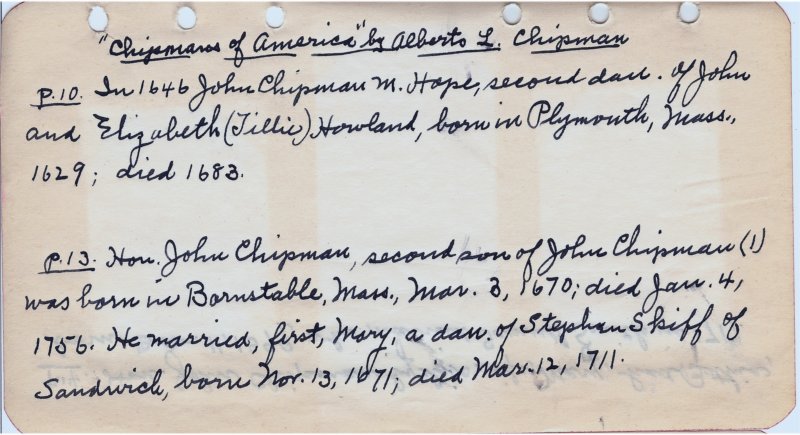 "Chipmans of America" by Alberto L. Chipman
p.10. In 1646 John Chipman m. Hope, second dau. of John
and Elizabeth (Tillie) Howland, born in Plymouth, Mass.,
1629; died 1683.
p.13. Hon. John Chipman, second son of John Chipman (1)
was born in Barnstable, Mass., Mar. 3, 1670; died Jan. 4,
1756. He married, first, Mary, a dau. of Stephen Skiff of
Sandwich, born Nov. 13, 1671; died Mar. 12, 1711.